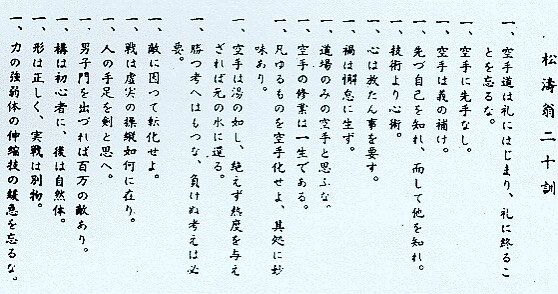 松濤翁二十訓
一、空手道は礼にはじまり、礼に終るこ
とを忘るな。
一、空手に先手なし。
一、空手は義の補け。
一、先づ自己を知れ、而して他を知れ。
一、技術より心術。
一、心は放たん事を要す。
一、禍は懈怠に生ず。
一、道場のみの空手と思ふな。
一、空手の修業は一生である。
一、凡ゆるものを空手化せよ、其処に妙
味あり。
一、空手は湯の如し、絶えず熱度を与え
ざれば元の水に還る。
一、勝つ考へはもつな、負けぬ考えは必
要。
一、敵に因つて転化せよ。
一、戦は虚実の操縦如何に在り。
一、人の手足を剣と思へ。
一、男子門を出づれば百万の敵あり。
一、構は初心者に、後は自然体。
一、形は正しく、実戦は別物。
一、力の強弱体の伸縮技の緩急を忘るな。